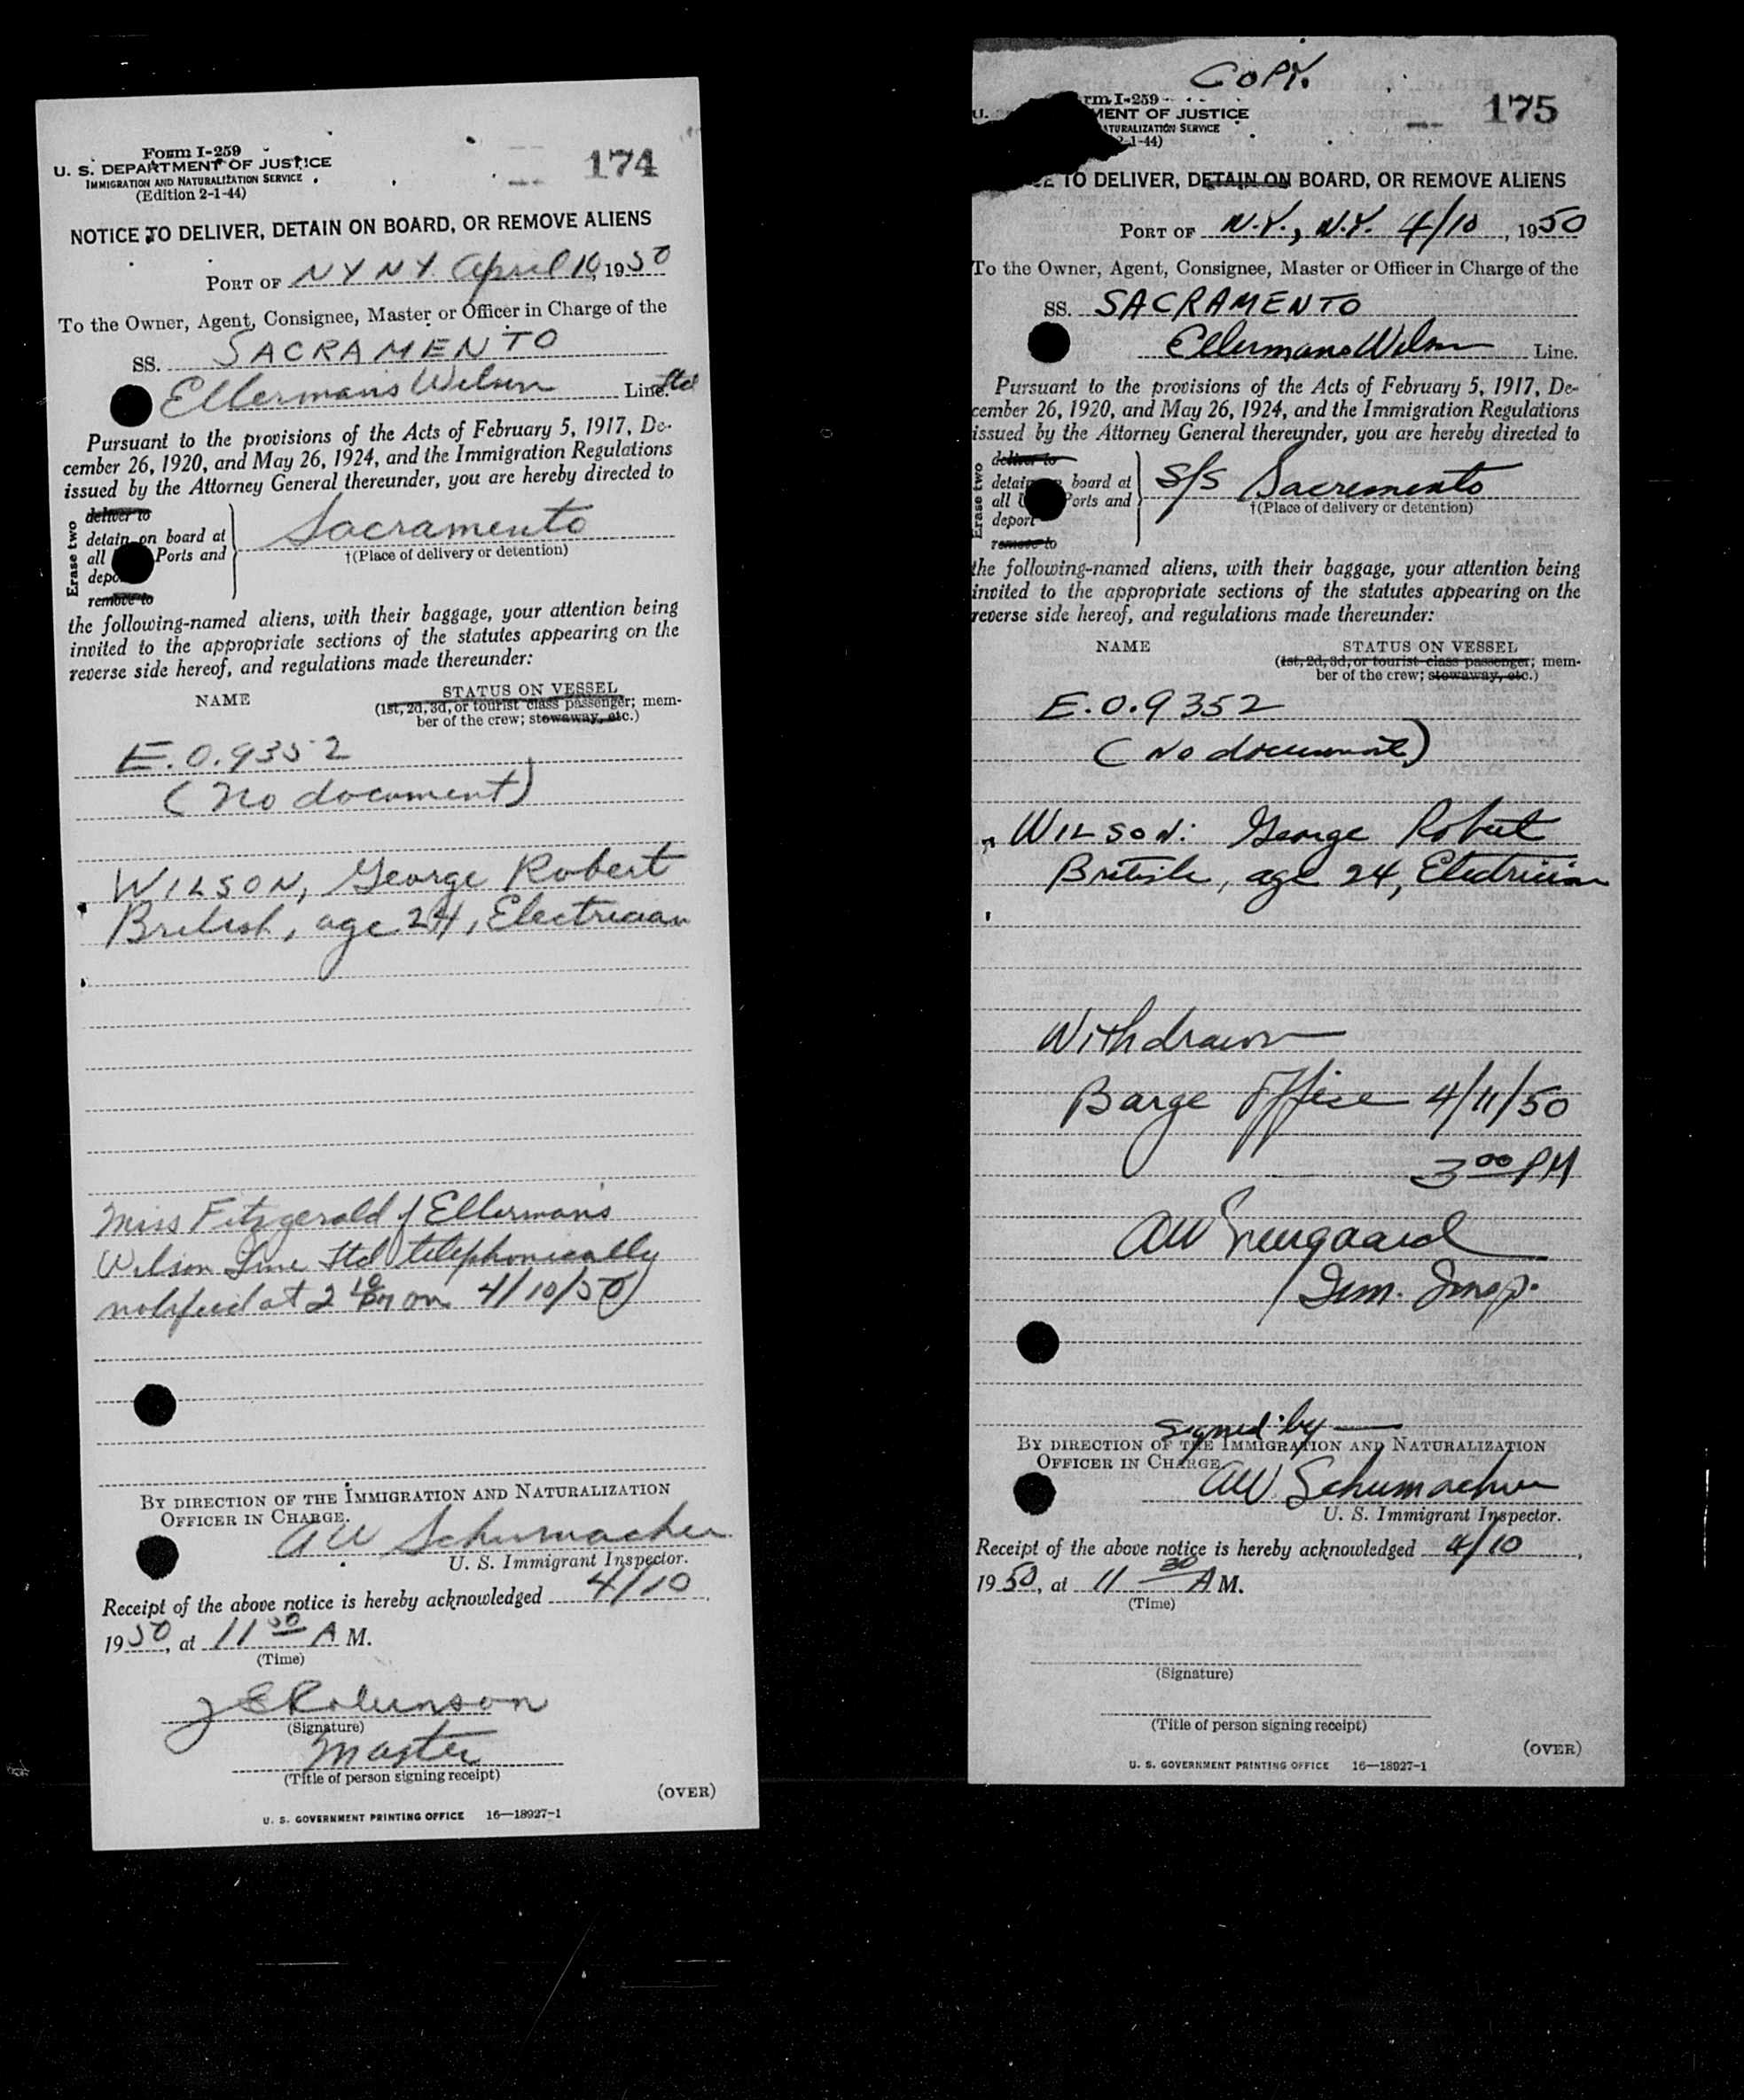 174
Form I-259
U. S. DEPARTMENT OF JUSTICE
IMMIGRATION AND NATURALIZATION SERVICE
(Edition 2-1-44)
NOTICE TO DELIVER, DETAIN ON BOARD, OR REMOVE ALIENS
PORT OF N Y N Y. April 10, 1950
To the Owner, Agent, Consignee, Master or Officer in Charge of the
SS. SACRAMENTO
Ellermans Wilson Line. Ltd
Pursuant to the provisions of the Acts of February 5, 1917, De-
cember 26, 1920, and May 26, 1924, and the Immigration Regulations
issued by the Attorney General thereunder, you are hereby directed to
Erase two
deliver to
detain on board at
all Ports and
depo
remove to
Sacramento
†(Place of delivery or detention)
the following-named aliens, with their baggage, your attention being
invited to the appropriate sections of the statutes appearing on the
reverse side hereof, and regulations made thereunder:
NAME STATUS ON VESSEL
(1st, 2d, 3d, or tourist class passenger; mem-
ber of the crew; stowaway, etc.)
E.O.9352
(No document)
WILSON, George Robert
British, age 24, Electrician
Miss Fitzgerald of Ellermans
Wilson Line Ltd telephonically
notified at 2 10 PM on 4/10/50
BY DIRECTION OF THE IMMIGRATION AND NATURALIZATION
OFFICER IN CHARGE.
AW Schumacher
U. S. Immigrant Inspector.
Receipt of the above notice is hereby acknowledged 4/10,
1950, at 11 30 A M.
(Time)
J E Robinson
(Signature)
Master
(Title of person signing receipt)
(OVER)
U. S. GOVERNMENT PRINTING OFFICE 16—18927-1
COPY.
175
rm I-259
U. MENT OF JUSTICE
ATURALIZATION SERVICE
2-1-44)
CE TO DELIVER, DETAIN ON BOARD, OR REMOVE ALIENS
PORT OF N.Y., N.Y. 4/10, 1950
To the Owner, Agent, Consignee, Master or Officer in Charge of the
SS. SACRAMENTO
Ellermans Wilson Line.
Pursuant to the provisions of the Acts of February 5, 1917, De-
cember 26, 1920, and May 26, 1924, and the Immigration Regulations
issued by the Attorney General thereunder, you are hereby directed to
Erase two
deliver to
detain board at
all Ports and
deport
remove to
S/S Sacremento
†(Place of delivery or detention)
the following-named aliens, with their baggage, your attention being
invited to the appropriate sections of the statutes appearing on the
reverse side hereof, and regulations made thereunder:
NAME STATUS ON VESSEL
(1st, 2d, 3d, or tourist class passenger; mem-
ber of the crew; stowaway, etc.)
E.O.9352
(No document)
WILSON: George Robert
British, age 24, Electrician
Withdrawn
Barge Office 4/11/50
3 00 PM
Imm. Insp.
Signed by
BY DIRECTION OF THE IMMIGRATION AND NATURALIZATION
OFFICER IN CHARGE.
AW Schumacher
U. S. Immigrant Inspector.
Receipt of the above notice is hereby acknowledged 4/10,
1950, at 11 30 A M.
(Time)
(Signature)
(Title of person signing receipt)
(OVER)
U. S. GOVERNMENT PRINTING OFFICE 16—18927-1